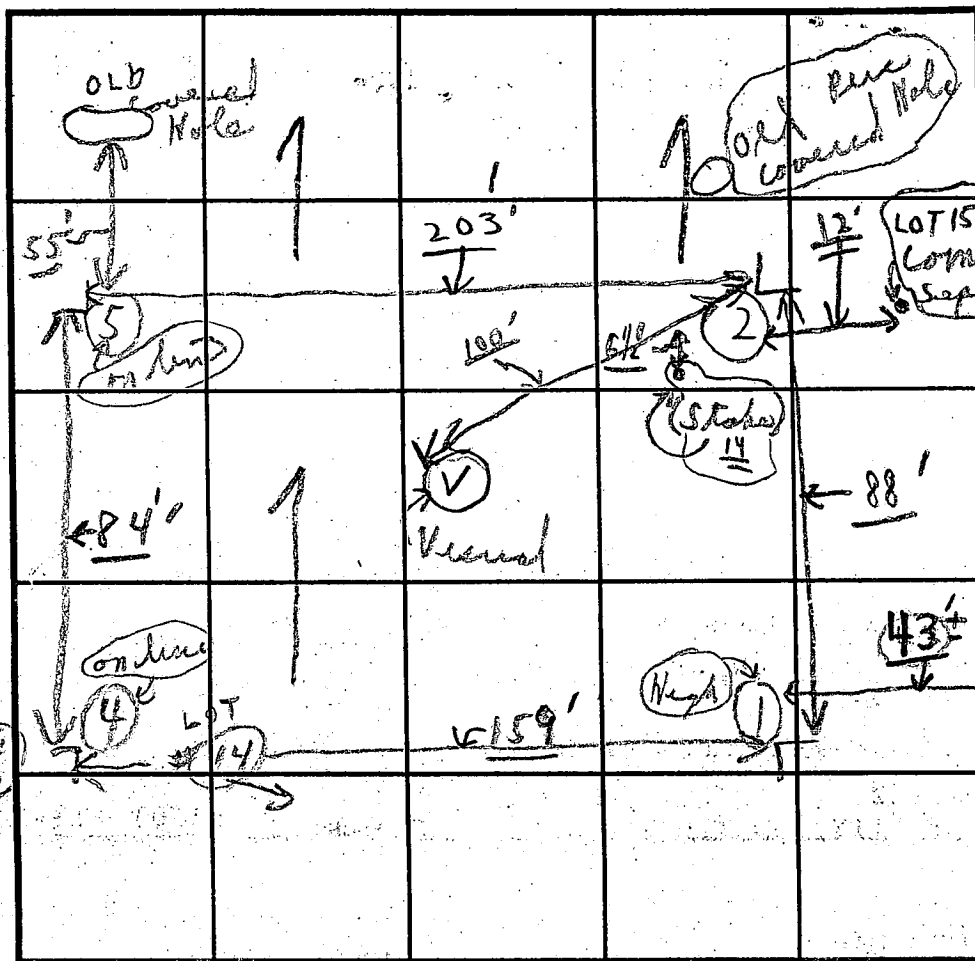 OLD
Covered
Hole
Old Perc
Covered Hole
55'
203'
12'
LOT 15
Com
Sep
5
on line
100'
6½'
2
Stake
14
V
Visual
84'
88'
on line
4
LOT
# 14
159'
High
1
43'±